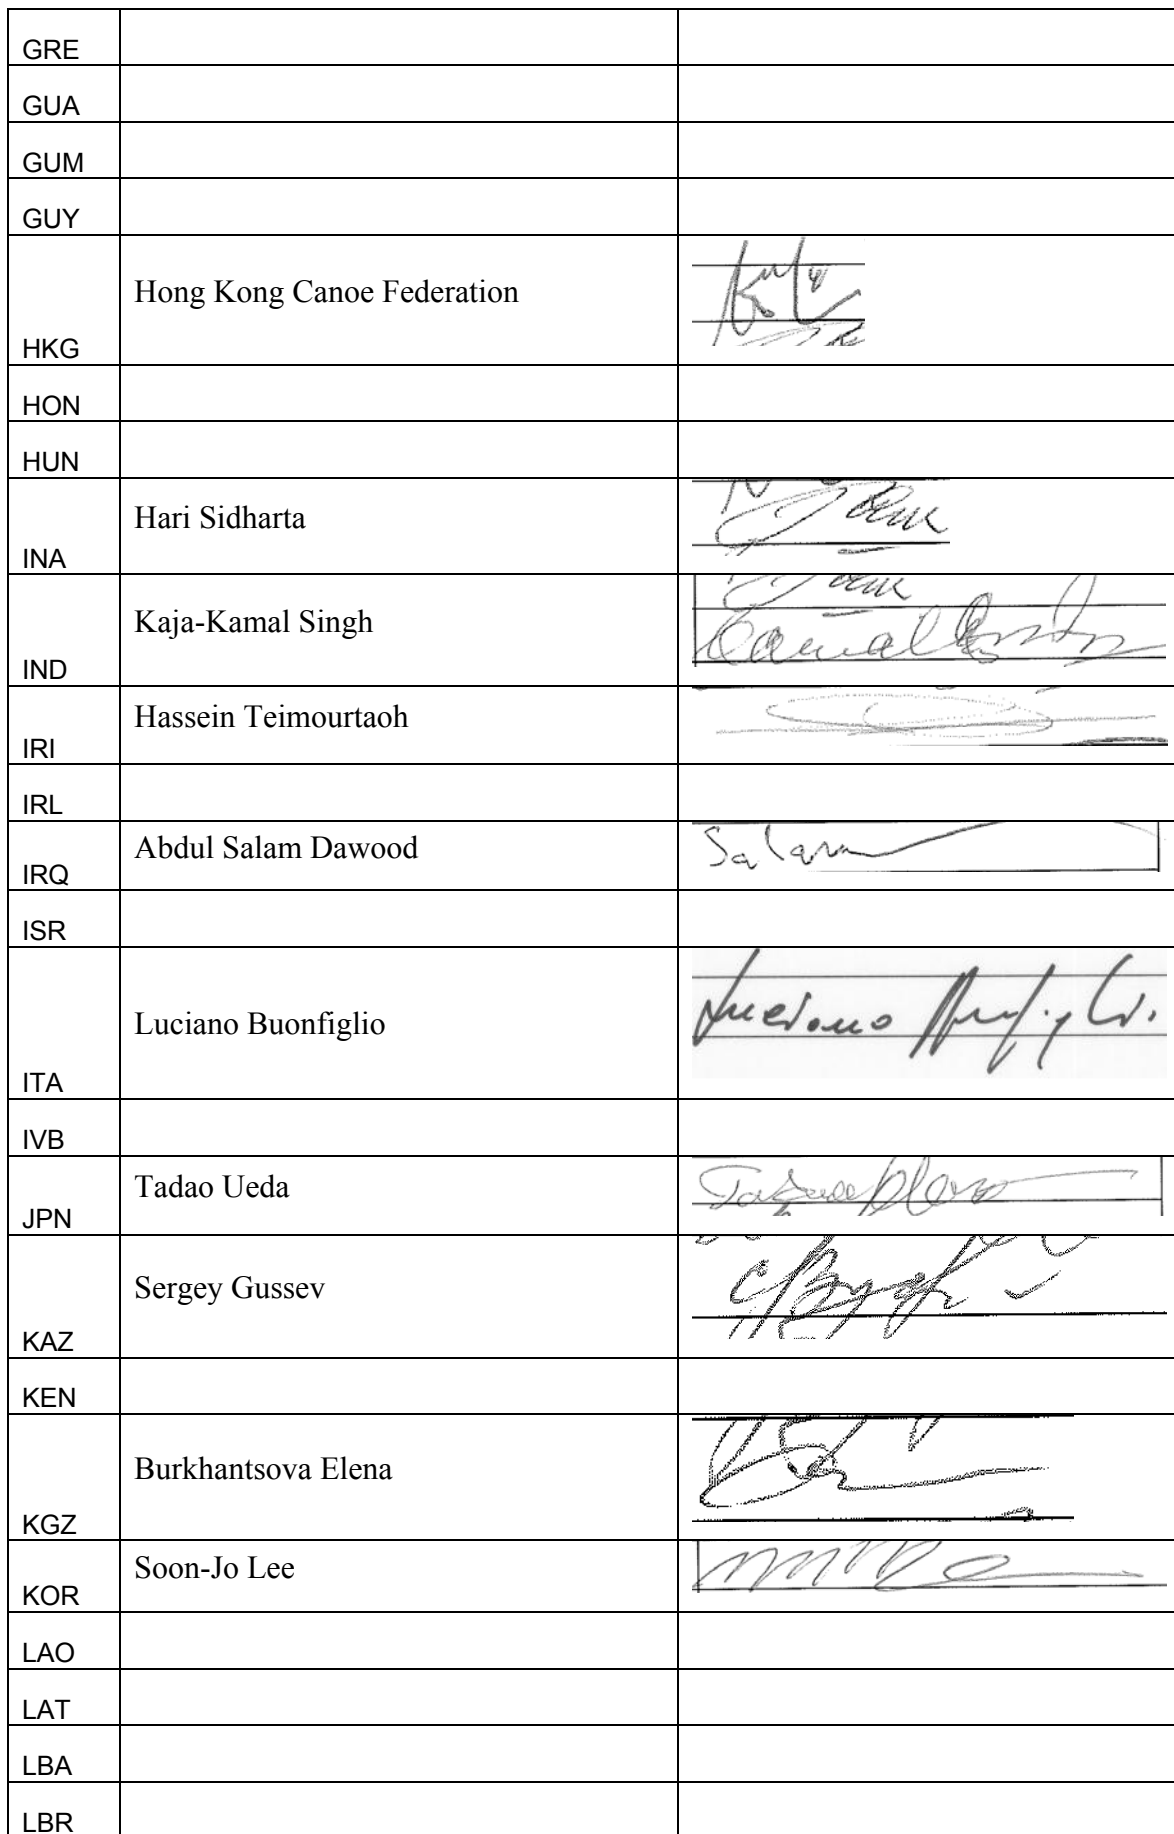 GRE
GUA
GUM
GUY
HKG Hong Kong Canoe Federation
HON
HUN
INA Hari Sidharta
IND Kaja-Kamal Singh
IRI Hassein Teimourtaoh
IRL
IRQ Abdul Salam Dawood Salam
ISR
ITA Luciano Buonfiglio Luciano
IVB
JPN Tadao Ueda
KAZ Sergey Gussev
KEN
KGZ Burkhantsova Elena
KOR Soon-Jo Lee
LAO
LAT
LBA
LBR